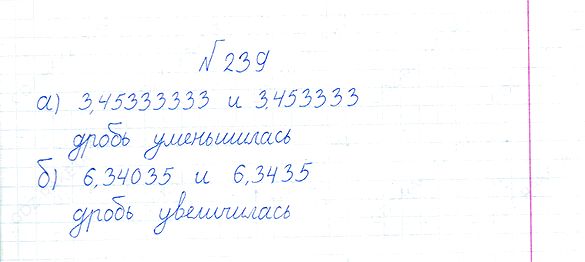 № 239
а) 3,45333333 и 3,453333
дробь уменьшилась
б) 6,34035 и 6,3435
дробь увеличилась